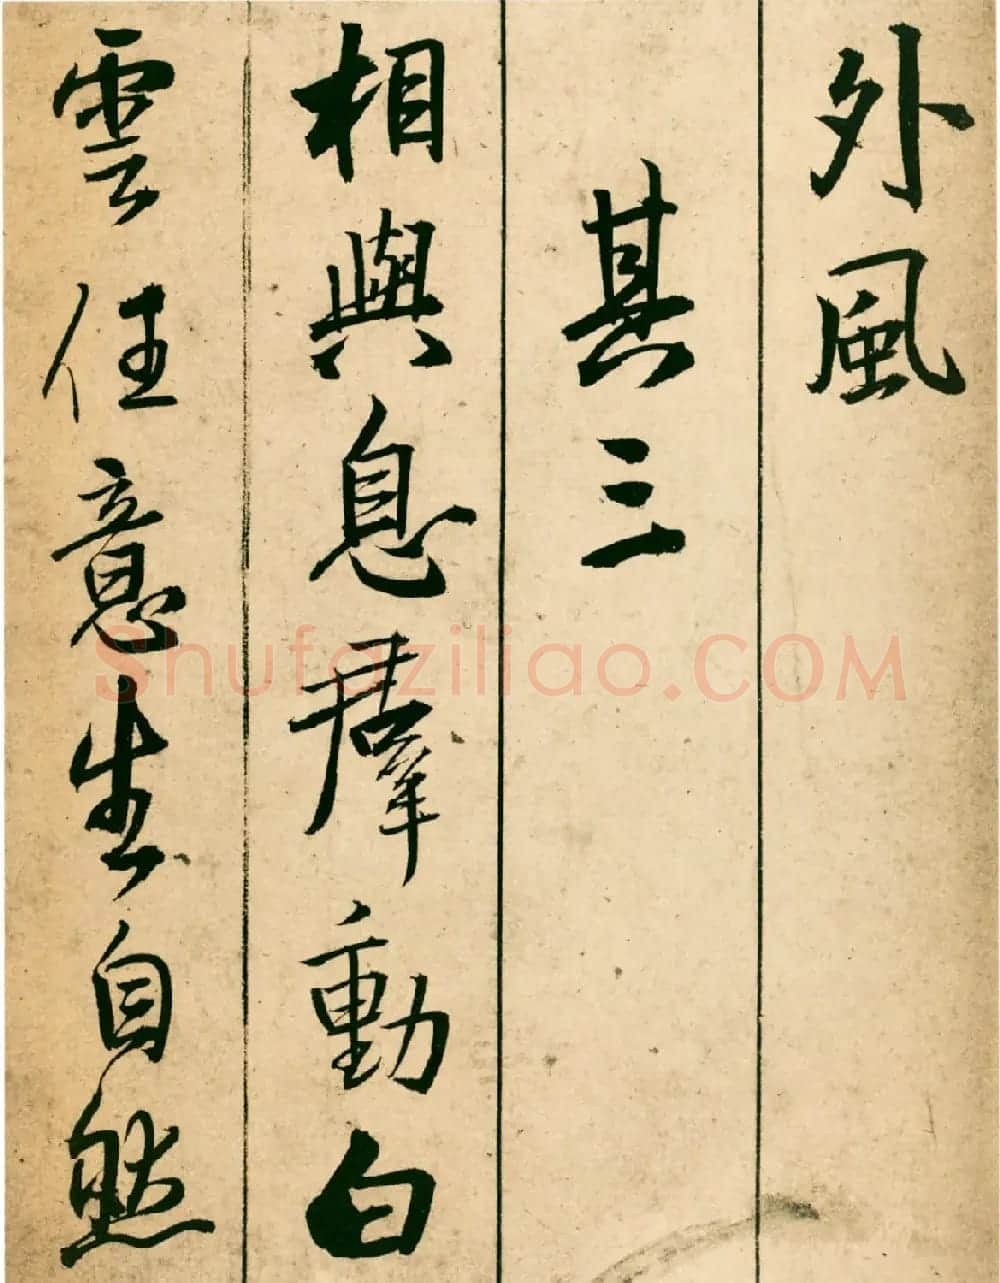 外風
其三
相與息羣動白
雲任意生自然
Shufaziliao.COM